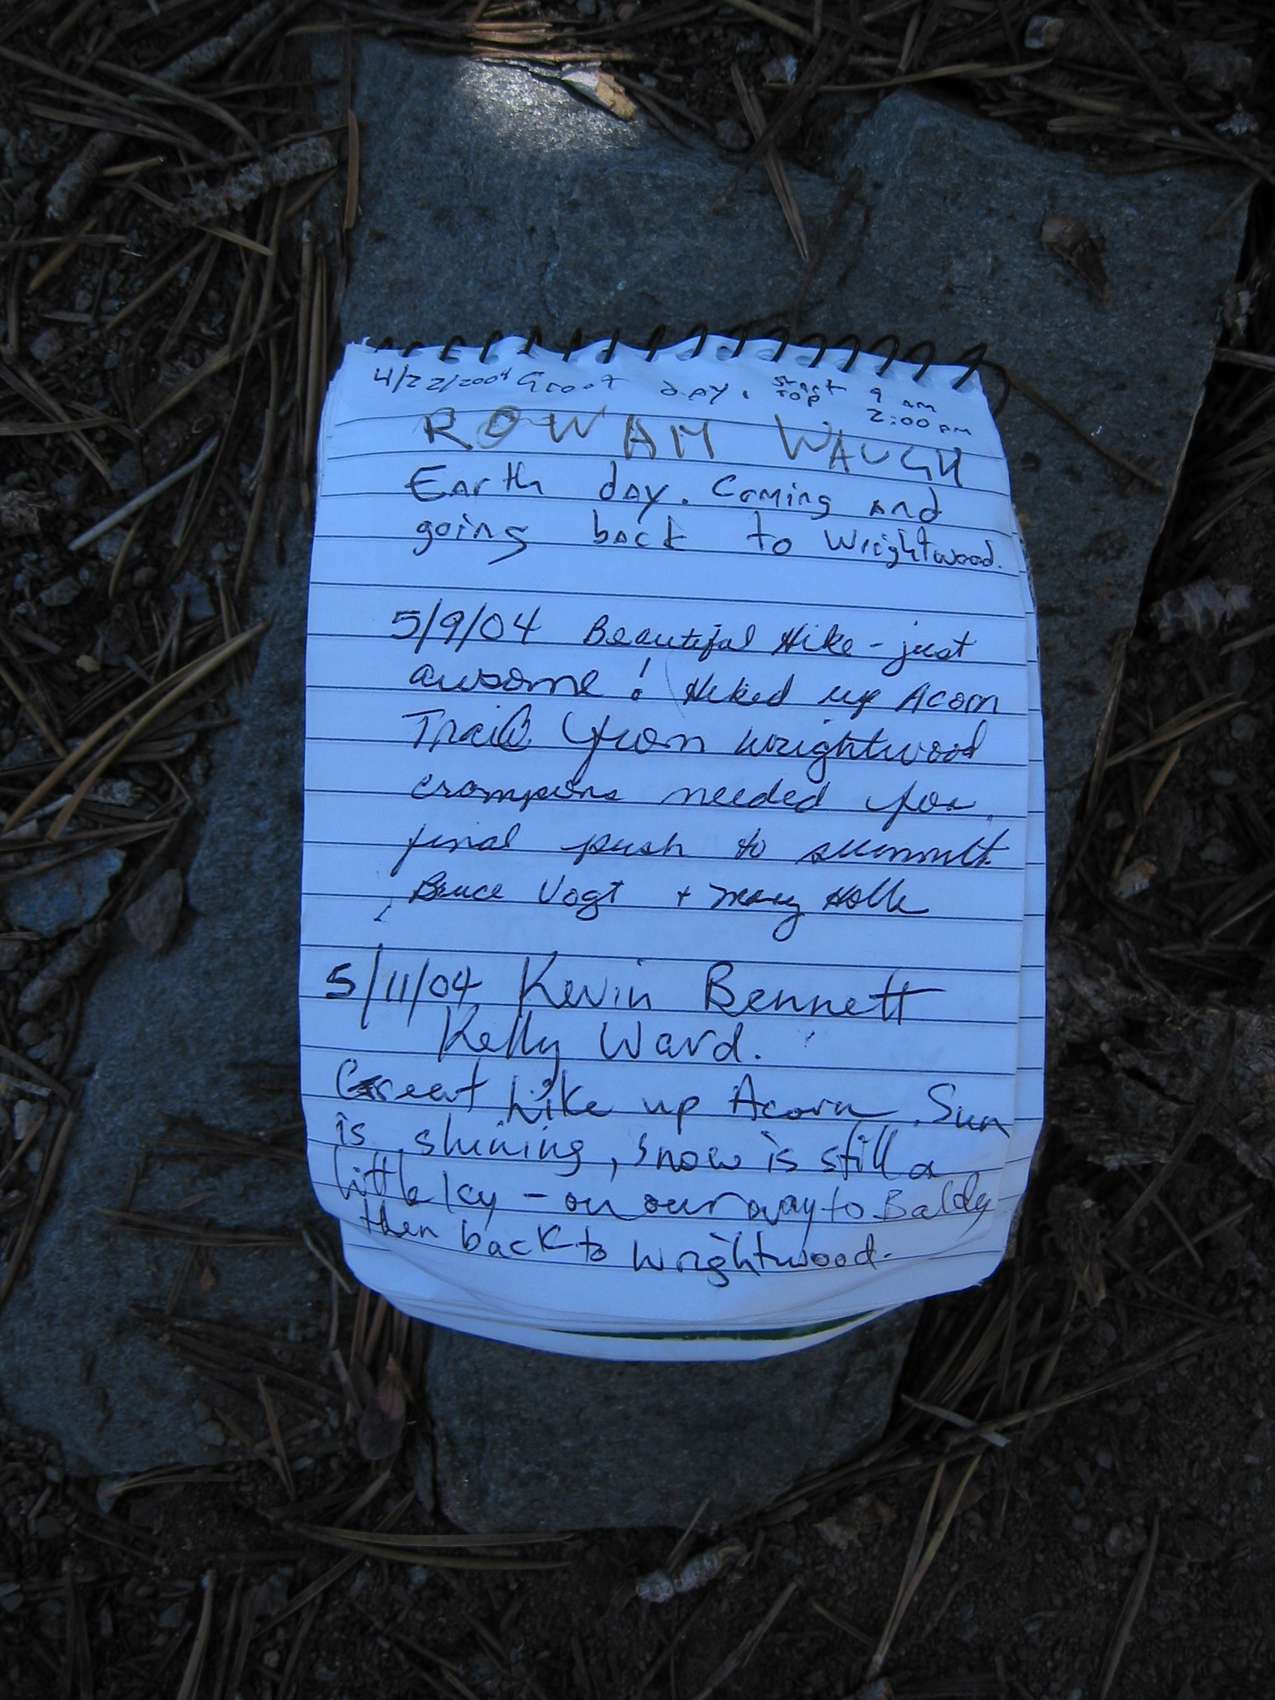 4/22/2004 Great day. start 9 am
top 2:00 pm
ROWAM WAUGH
Earth day. Coming and
going back to Wrightwood.
5/9/04 Beautiful Hike - just
awsome! Hiked up Acorn
Trail from Wrightwood
crampons needed for
final push to summitt
Bruce Vogt + Mary Holle
5/11/04 Kevin Bennett
Kelly Ward.
Great hike up Acorn. Sun
is shining, snow is still a
little Icy - on our way to Baldy
then back to Wrightwood.